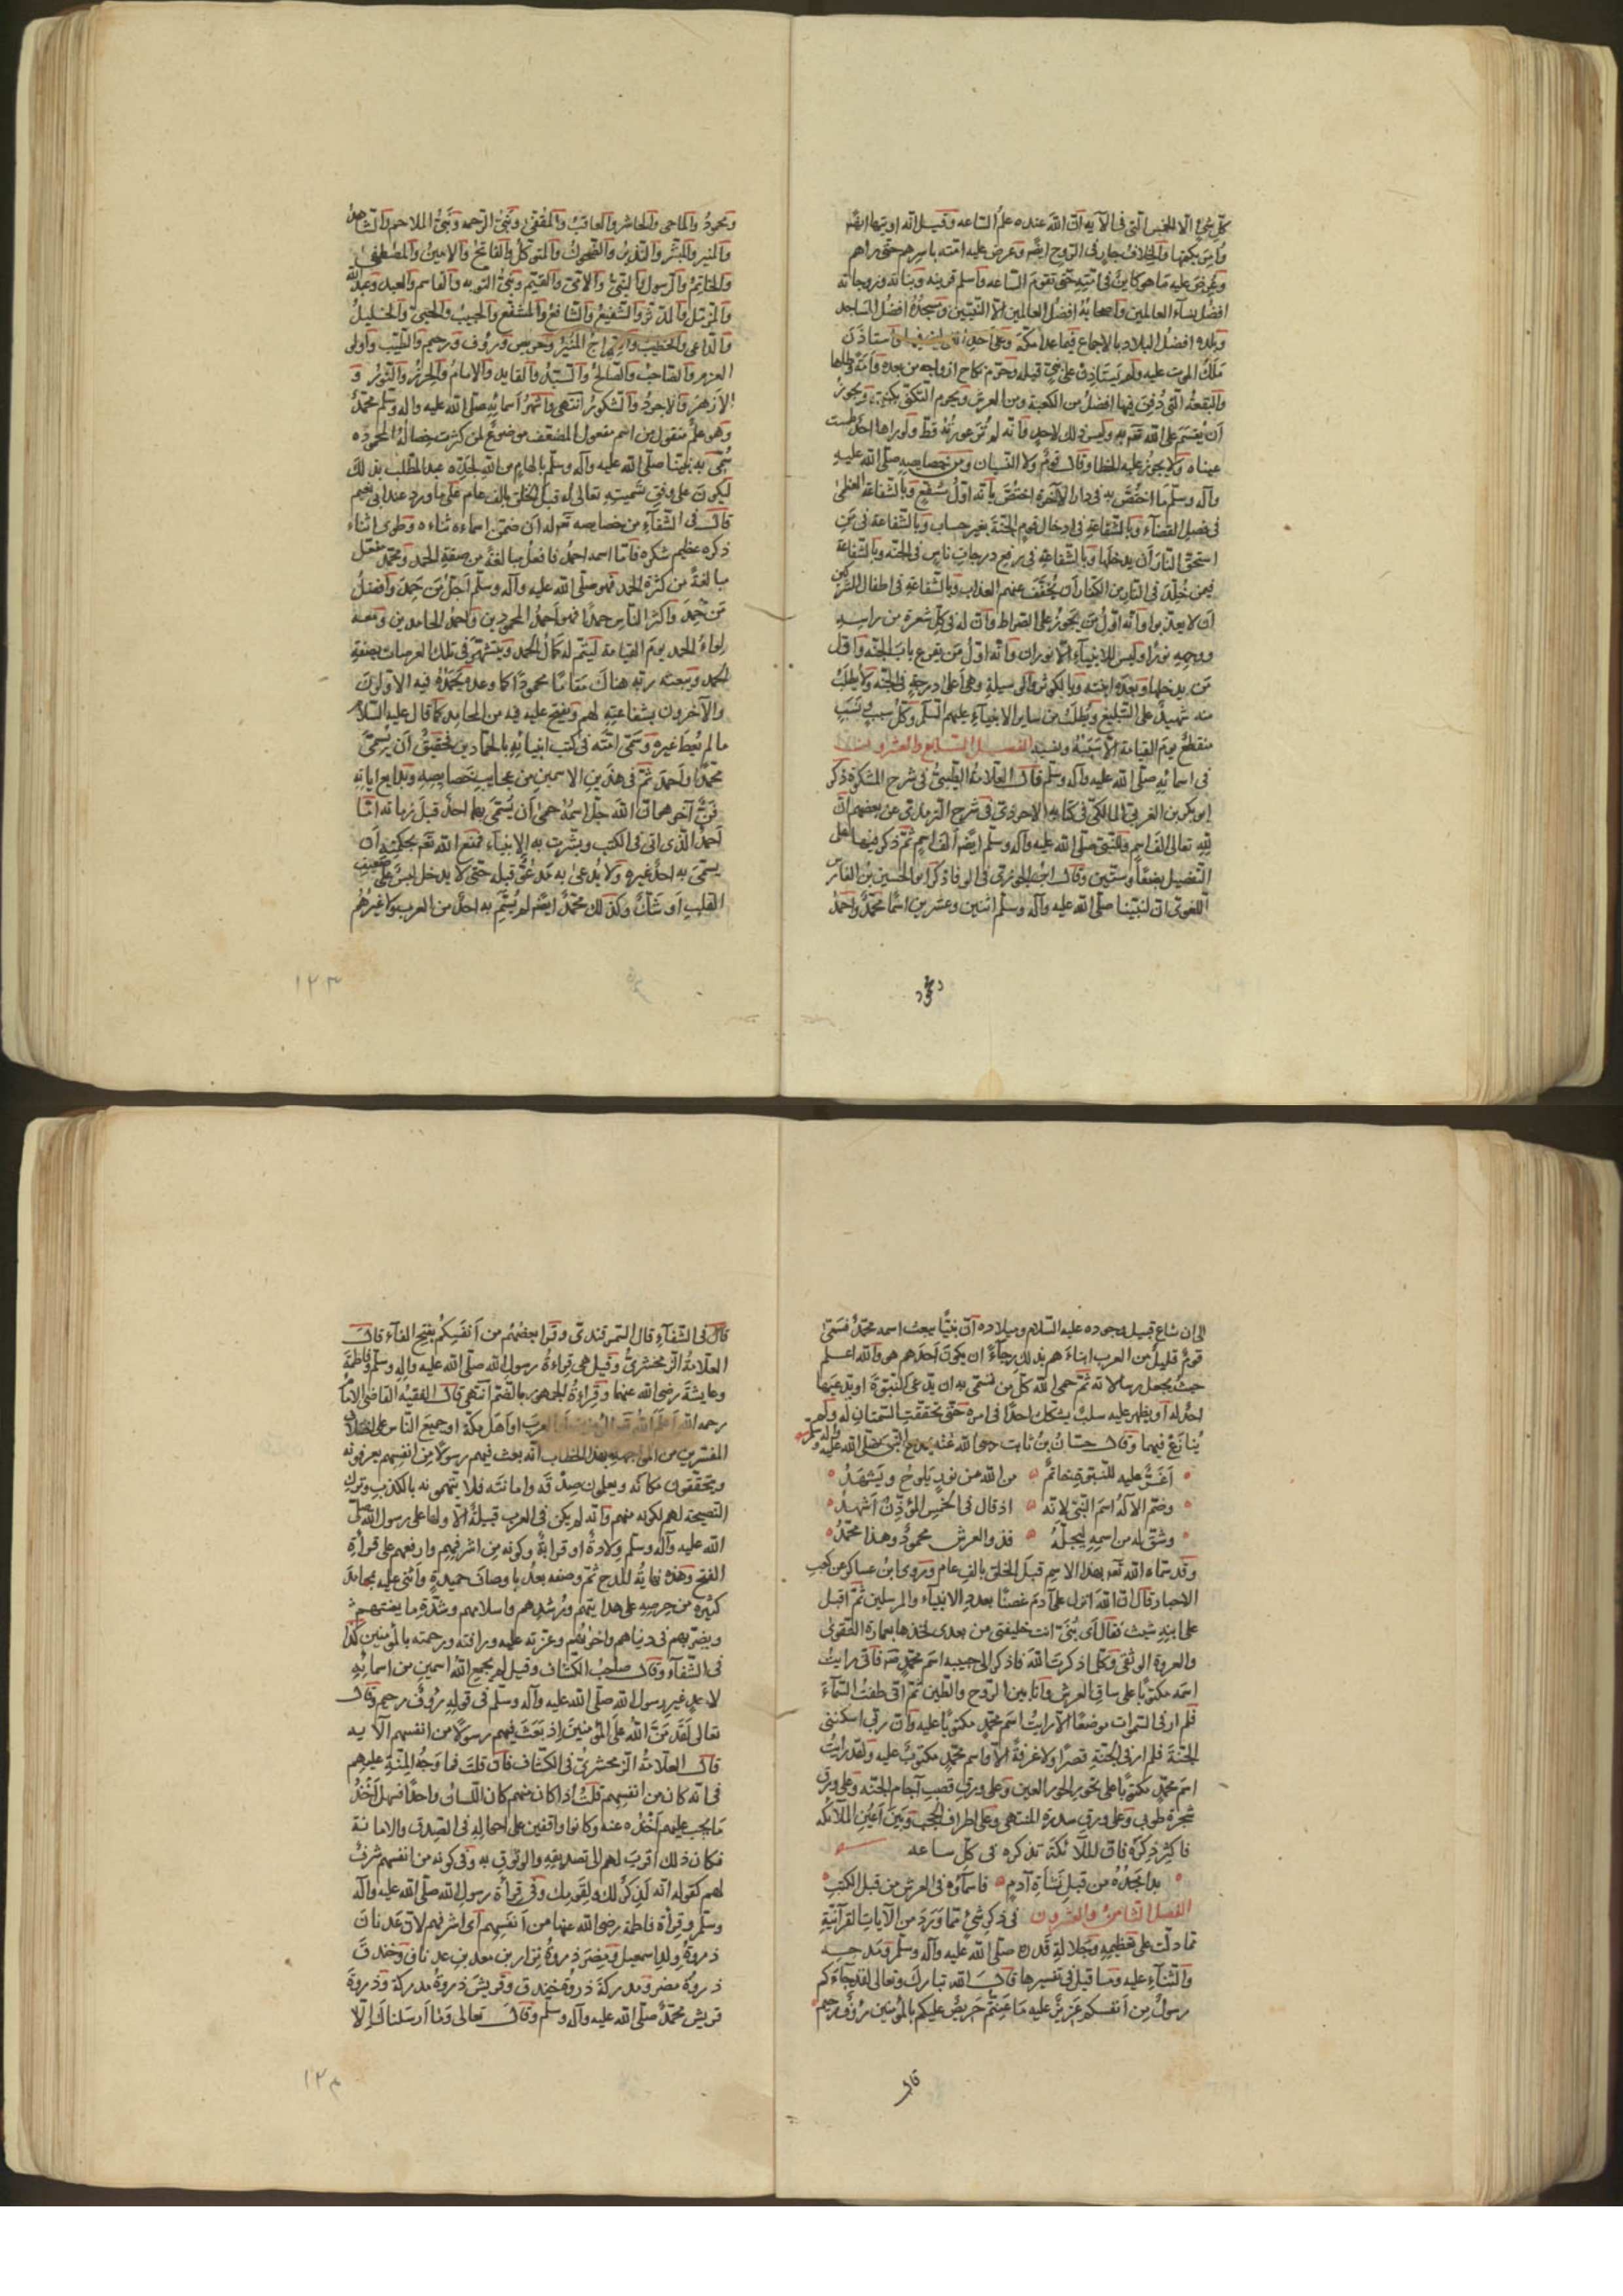 كلّ شيء الّا الخمس الّتى فى الآيه انّ الله عنده علم السّاعه وقيل انّه اوتيها ايضًا
وامر بكتمها والخلاف جار فى الرّوح ايضًا وعرض عليه امّته باسرهم حتّى راهم
وعرض عليه ما هو كاين فى امّته حتّى تقوم السّاعه واسلم قرينه وبناته وزوجاته
افضل نسآء العالمين واصحابه افضل العالمين الّا النّبيّين ومسجده افضل المساجد
وبلده افضل البلاد بالاجماع فيما عدا مكّة وعلى احد القولين فيها واستاذن
ملك الموت عليه ولم يستاذن على نبىّ قبله وحرّم نكاح ازواجه من بعده وامة وطئها
والبقعة الّتى دفن فيها افضل من الكعبة ومن العرش ويحرم التّكنّى بكنيته ويجوز
أن يقسم على الله تعالى به وليس ذلك لاحد وانّه لم تر عورته قطّ ولو راها احد طمست
عيناه ولا يجوز عليه الخطا وقال قوم ولا النّسيان ومن خصايصه صلّى الله عليه
وآله وسلّم ما اختصّ به فى دار الآخرة اختصّ بأنّه اوّل شفيع وبالشّفاعة العظمى
فى فصل القضآء وبالشّفاعة فى ادخال قوم الجنّة بغير حساب وبالشّفاعة فى من
استحقّ النّار أن يدخلها وبالشّفاعة فى رفع درجات ناس فى الجنّه وبالشّفاعة
فيمن خلّد فى النّار من الكفّار أن يخفّف عنهم العذاب وبالشّفاعة فى اطفال المشركين
أن لا يعذّبوا وانّه اوّل من يجوز على الصّراط وانّ له فى كلّ شعرة من راسه
ووجهه نورًا وليس للانبيآء الّا نوران وانّه اوّل من يقرع باب الجنّه واوّل
من يدخلها وبعده امّته وبالكوثر والوسيلة وهى أعلى درجة فى الجنّه ولا يطلب
منه شهيد على التّبليغ ويطلب من ساير الانبيآء عليهم السّلم وكلّ سبب ونسب
منقطع يوم القيامة الّا سببه ونسبه الفصل السّابع والعشرون
فى اسمائه صلّى الله عليه وآله وسلّم قال العلامة الطّيبىّ فى شرح المشكوة ذكر
ابو بكر بن العربى المالكىّ فى كتابه الاحوذى فى شرح التّرمذى عن بعضهم انّ
لله تعالى الف اسم وللنّبىّ صلّى الله عليه وآله وسلّم ايضًا الف اسم ثمّ ذكر منها على
التّفصيل بضعًا وستّين وقال ابن الجوزى فى الوفا ذكر ابو الحسين بن الفارس
اللّغوى انّ لنبيّنا صلّى الله عليه وآله وسلّم اثنين وعشرين اسمًا محمّد واحمد
ومحمود والماحى والحاشر والعاقب والمقفى ونبىّ الرّحمه ونبىّ الملاحم والشّاهد
والمنير والمبشّر والنّذير والضّحوك والمتوكّل والفاتح والامين والمصطفى
والخاتم والرّسول والنّبىّ والامّى والقيّم ونبىّ التّوبه والقاسم والعبد وعبد الله
والمزّمّل والمدّثّر والشّفيع والشّافع والمشفّع والحبيب والخليل
والدّاعى والخطيب والسّراج المنير وحريص ورؤف ورحيم والطّيّب واولى
العزم والصّاحب والصّالح والسّيّد والقايد والامام والحرز والنّور و
الأزهر والاجود والشّكور انتهى واشهر أسمائه صلّى الله عليه وآله وسلّم محمّد
وهو علم منقول من اسم مفعول المضعّف موضوع لمن كثرت خصاله المحموده
سمّى به نبيّنا صلّى الله عليه وآله وسلّم بالهام من الله لجدّه عبد المطّلب بذلك
ليكون على وفق تسميته تعالى له قبل الخلق بالف عام على ما ورد عند ابى نعيم
قال فى الشّفآء من خصايصه تعالى له أن ضمّن اسماءه ثناءه وطوى اثناء
ذكره عظيم شكره فامّا اسمه احمد فافعل مبالغة من صفة الحمد ومحمّد مفعّل
مبالغة من كثرة الحمد فهو صلّى الله عليه وآله وسلّم أجلّ من حمد وأفضل
من حمد واكثر النّاس حمدًا فهو أحمد المحمودين وأحمد الحامدين ومعه
لواء الحمد يوم القيامة ليتمّ له كمال الحمد ويتشهّر فى تلك العرصات بصفة
الحمد ويبعثه ربّه هناك مقامًا محمودًا كما وعده يحمده فيه الاوّلون
والآخرون بشفاعته لهم ويفتح عليه فيه من المحامد كما قال عليه السّلام
ما لم يعط غيره وسمّى امّته فى كتب انبيائه بالحمّادين فحقيق أن يسمّى
محمّدًا وأحمد ثمّ فى هذين الاسمين من عجايب خصايصه وبدايع اياته
فنّ آخر هو انّ الله جلّ اسمه حمى أن يسمّى بهما احد قبل زمانه امّا
أحمد الّذى اتى فى الكتب وبشّرت به الانبيآء فمنع الله تعالى بحكمته أن
يسمّى به احد غيره ولا يدعى به مدعوّ قبله حتّى لا يدخل لبس على ضعيف
القلب أو شكّ وكذلك محمّد ايضًا لم يسمّ به احد من العرب ولا غيرهم
١٢٣
الى ان شاع قبيل وجوده عليه السّلام وميلاده انّ نبيًّا يبعث اسمه محمّد فسمّى
قوم قليل من العرب ابناءهم بذلك رجآء ان يكون أحدهم هو والله اعلم
حيث يجعل رسالاته ثمّ حمى الله كلّ من تسمّى به ان يدّعى النّبوّة او يدّعيها
احد له أو يظهر عليه سبب يشكّك احدًا فى امره حتّى تحقّقت السّمتان له ولم
ينازع فيهما وقال حسّان بن ثابت رضى الله عنه يمدح النّبى صلّى الله عليه وآله وسلّم
أغرّ عليه للنّبوّة خاتم من الله من نور يلوح ويشهد
وضمّ الاله اسم النّبىّ لانّه اذ قال فى الخمس المؤذّن أشهد
وشقّ له من اسمه ليجلّه فذو العرش محمود وهذا محمّد
وقد سمّاه الله تعالى بهذا الاسم قبل الخلق بالف عام وروى ابن عساكر عن كعب
الاحبار قال انّ الله انزل على آدم عصيًّا بعدد الانبيآء والمرسلين ثمّ اقبل
على ابنه شيث فقال أى بنىّ انت خليفتى من بعدى فخذها بعمارة التّقوى
والعروة الوثقى وكلّما ذكرت الله فاذكر الى جنبه اسم محمّد فانّى رايت
اسمه مكتوبًا على ساق العرش وأنا بين الرّوح والطّين ثمّ انّى طفت السّمآء
فلم ار فى السّموات موضعًا الّا رايت اسم محمّد مكتوبًا عليه وانّ ربّى اسكننى
الجنّة فلم ار فى الجنّة قصرًا ولا غرفة الّا واسم محمّد مكتوب عليه ولقد رايت
اسم محمّد مكتوبًا على نحور الحور العين وعلى ورق قصب آجام الجنّه وعلى ورق
شجرة طوبى وعلى ورق سدرة المنتهى وعلى اطراف الحجب وبين أعين الملآئكه
فاكثر ذكره فانّ الملآئكة تذكره فى كلّ ساعه
بدا مجده من قبل نشأة آدم فاسمآؤه فى العرش من قبل الكتب
الفصل الثّامن والعشرون فى ذكر شىء ممّا ورد من الآيات القرآنيّة
ممّا دلّت على تعظيمه وجلالة قدره صلّى الله عليه وآله وسلّم ومدحه
والثّنآء عليه وما قيل فى تفسيرها قال الله تبارك وتعالى لقد جآءكم
رسول من أنفسكم عزيز عليه ما عنتّم حريص عليكم بالمؤمنين رؤف رحيم
قال
قال فى الشّفآء قال السّمرقندى وقرأ بعضهم من أنفسكم بفتح الفآء قال
العلامة الزّمخشرىّ وقيل هى قراءة رسول الله صلّى الله عليه وآله وسلّم وفاطمة
وعايشة رضى الله عنهما وقراءة الجمهور بالضّمّ انتهى قال الفقيه القاضى الامام
رحمه الله أعلم الله تعالى المؤمنين أو العرب او اهل مكّة او جميع النّاس على اختلاف
المفسّرين من المواجه بهذا الخطاب انّه بعث فيهم رسولًا من انفسهم يعرفونه
ويتحقّقون مكانه ويعلمون صدقه وامانته فلا يتّهمونه بالكذب وترك
النّصيحة لهم لكونه منهم وانّه لم يكن فى العرب قبيلة الّا ولها على رسول الله صلّى
الله عليه وآله وسلّم ولادة او قرابة وكونه من اشرفهم وارفعهم على قرآءة
الفتح وهذه نهاية المدح ثمّ وصفه بعد باوصاف حميدة وأثنى عليه بمحامد
كثيرة من حرصه على هدايتهم ورشدهم واسلامهم وشدّة ما يعنتهم
ويضرّ بهم فى دنياهم واخراهم وعزّته عليه ورافته ورحمته بالمؤمنين كذا
فى الشّفآء وقال صاحب الكشّاف وقيل لم يجمع الله اسمين من اسمائه
لاحد غير رسول الله صلّى الله عليه وآله وسلّم فى قوله رؤف رحيم وقال
تعالى لقد منّ الله على المؤمنين اذ بعث فيهم رسولًا من انفسهم الآيه
قال العلامة الزّمخشرىّ فى الكشّاف فان قلت فما وجه المنّة عليهم
فى انّه كان من انفسهم قلت اذا كان منهم كان اللّسان واحدًا فسهل أخذ
ما يجب عليهم أخذه عنه وكانوا واقفين على احواله فى الصّدق والامانة
فكان ذلك أقرب لهم الى تصديقه والوثوق به وفى كونه من انفسهم شرف
لهم كقوله انّه لذكر لك ولقومك وفى قرآءة رسول الله صلّى الله عليه وآله
وسلّم وقرآءة فاطمة رضى الله عنها من أنفسهم أى اشرفهم لانّ عدنان
ذروة ولد اسمعيل ومضر ذروة نزار بن معد بن عدنان وخندف
ذروة مضر ومدركة ذروة خندف وقريش ذروة مدركة وذروة
قريش محمّد صلّى الله عليه وآله وسلّم وقال تعالى وما أرسلناك الّا
١٢٤